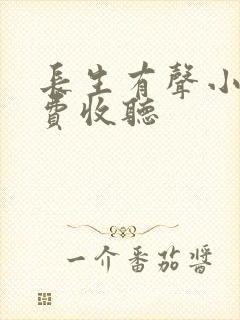 長生有聲小
費收聽
一介番茄醬